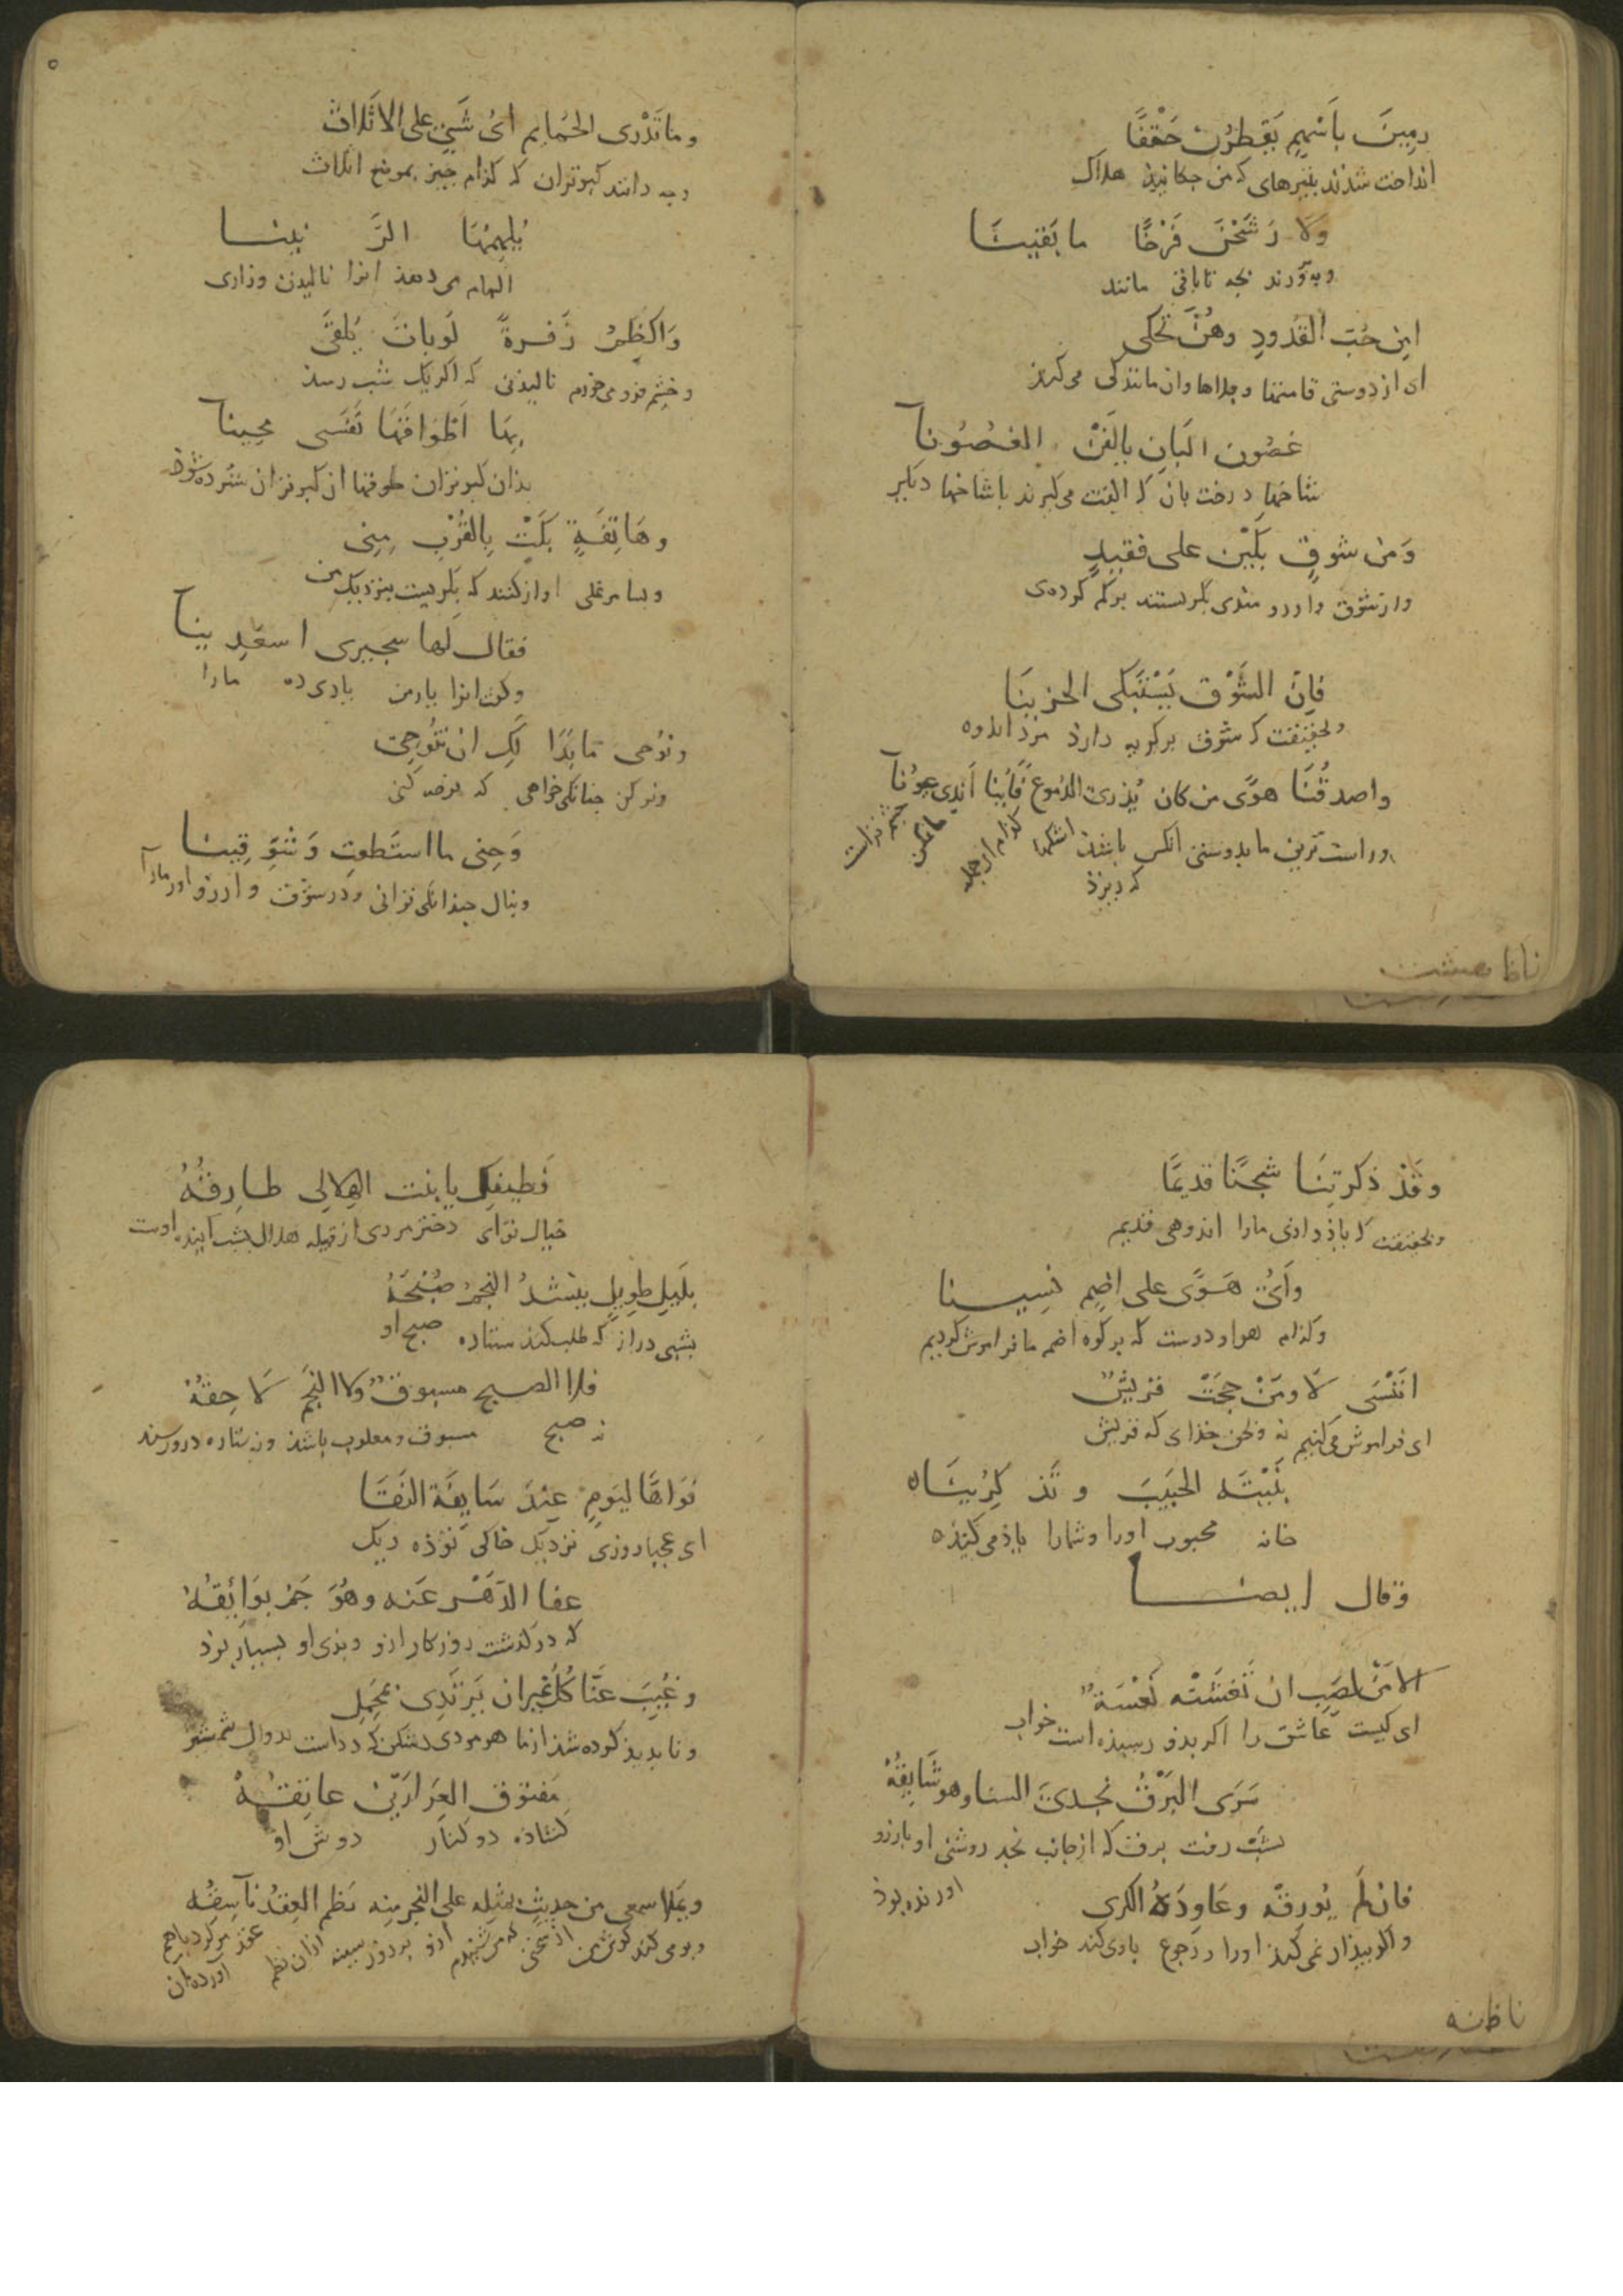 رمِينَ باَسْهمٍ يَقطرْن حَتْفًا
انداخت شدند بتیرهای که من چکانیذ هلاک
وَلَا رَشَّحْنَ فَرْخًا ما بَقينَا
و به پرورند بچه تا باقی مانند
اين حُبّ القُدودِ وهُنَّ تحكى
ای از دوستی قامتها و ان مانندکی می کرند
غصُون البَانِ يالفنْ الغصُونَا
شاخها درخت بان که الفت می کیرند با شاخها دیکر
وَمن شوقٍ بَكَيْن على فقيدٍ
واز شوق و ارزو مندی بکریستند بر کم کرده‌ی
فاِنّ الشَّوْق يَسْتَبكى الحزينَا
و بحقیقت که شوق بر کریه دارد مرد اندوه
واصدقُنَا هوًى من كان يُذرى الدّموع فَايّنا اَندى عيونًا
و راست ترین ما بدوستی انکس باشد اشکها کدام از جمله ما چشم تر است
که ریزد
ناظا معيشت
وما تَدْرى الحمَايم اىّ شَىٍ على الاثَلاث
و چه دانند کبوتران که کدام چیز بموضع اثلاث
يُلهِمُهَا الرَّنينا
الهام می دهد انرا نالیدن و زاری
وَاكظِمُ زَفرةً لَو بَاتَ يُلقى
و خشم فرو می خورم نالیدنی که اکر یک شب رسد
بِهَا اَطوَاقهَا نَفَسى محِينَا
بدان کبوتران طوقها ان کبوتران ستر ده شود
وهَاتِفَةٍ بَكَتْ بِالقُرْبِ مِنى
و بسا مرغی اواز کنند که بکریست بنزدیک من
فقال لَها سجيرى اسعَدِينا
و کفت انرا یار من یاری ده مارا
ونوُحى مَا بَدَا لَكِ ان تنُوحِى
ونوحه کن چنانکی خواهی که نوحه کنی
وَحِنى ما استَطعتِ وَشوّقِينَا
و بنال چندانکی توانی و در شوق و ارزو اور مارا
وقَدْ ذكرتِنَا شجَنًا قديمًا
و بحقیقت که یاذ دادی مارا اندوهی قدیم
وَاَىّ هَوًى على اضِمٍ نسِينا
و کدام هوا و دوست که بر کوه اضم ما فراموش کردیم
اَنَنْسَى لَا ومَنْ حجَتْ قريشٌ
ای فراموش می کنیم نه و بحق خدای که قریش
بَنِيَّتَه الحَبيبَ وتذكرينَاه
خانه محبوب اورا وشمارا یاذ می کنیذه
وقال ايضا
الا مَنْ لصَبٍ ان تغَشّتْه نَعْسَةٌ
ای کیست عاشق را اکر بدو رسیذه است خواب
سَرَى البَرْقُ نجدىّ السنا وهو شَايِقُهُ
بشب رفت برق که از جانب نجد روشنی او بارزو
اورنده بوذ
فان لَم يُورقْه وعَاودَهُ الكرى
و اکر بیذار نمی کند اورا و رجوع یاری کند خواب
ناظانه
فَطيفكِ يا بنت الهِلالى طارِقهُ
خیال تو ای دختر مردی از قبیله هلال بشب اینده اوست
بلَيلٍ طوِيلٍ ينشدُ النجمُ صُبْحَهُ
بشبی دراز که طلب کند ستاره صبح او
فلا الصبح مسبوقٌ ولا النجمُ لَاحِقهُ
نه صبح مسبوق و مغلوب باشذ ونه ستاره دررسند
فوَاهًا ليَومٍ عِندَ سَايفَة النَقَا
ای عجبا روزی نزدیک خاکی توده ریک
عفا الدَهْر عَنه وهُوَ جَمّ بوَائِقهُ
که درکذشت روزکار ازو و بدی او بسیار بود
وغُيِبَ عَنَّا كُلّ غيران يَرتَدِى بمحَمِلِ
و نابدیذ کرده شد از ما هر مردی رشکن که رداست بدوال شمشیر
مَفتوق الغِرَارَيْن عاتِقهُ
کشاده دو کنار دوش او
ويَملا سمعى من حديثٍ بثِه على النحر منه نظم العِقدُ نَاسِقُه
و پر می کند کوش من از سخنی که می شنیدم ازو بر روز سینه ازان نظم عقد بر کرد باهم
اورده ان